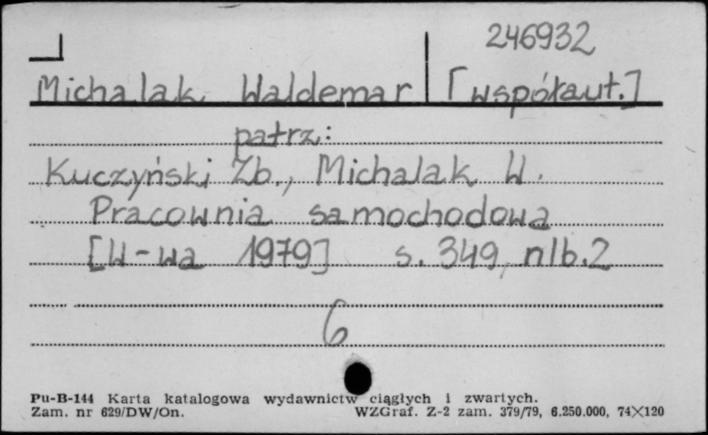 246932
Michalak Waldemar [współaut.]
patrz:
Kuczyński Zb., Michalak W.
Pracownia samochodowa
[W-wa 1979] s. 349, nlb.2
6
Pu-B-144 Karta katalogowa wydawnictw ciągłych i zwartych.
Zam. nr 629/DW/On. WZGraf. Z-2 zam. 379/79, 6.250.000, 74×120